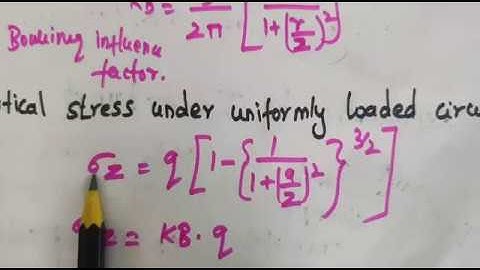 KB = 3/2π [1/1+(r/z)²]
Boussinesq Influence
factor.
tical stress under uniformly loaded circu
σz = q [1-{1/1+(a/z)²}^3/2]
σz = KB. q